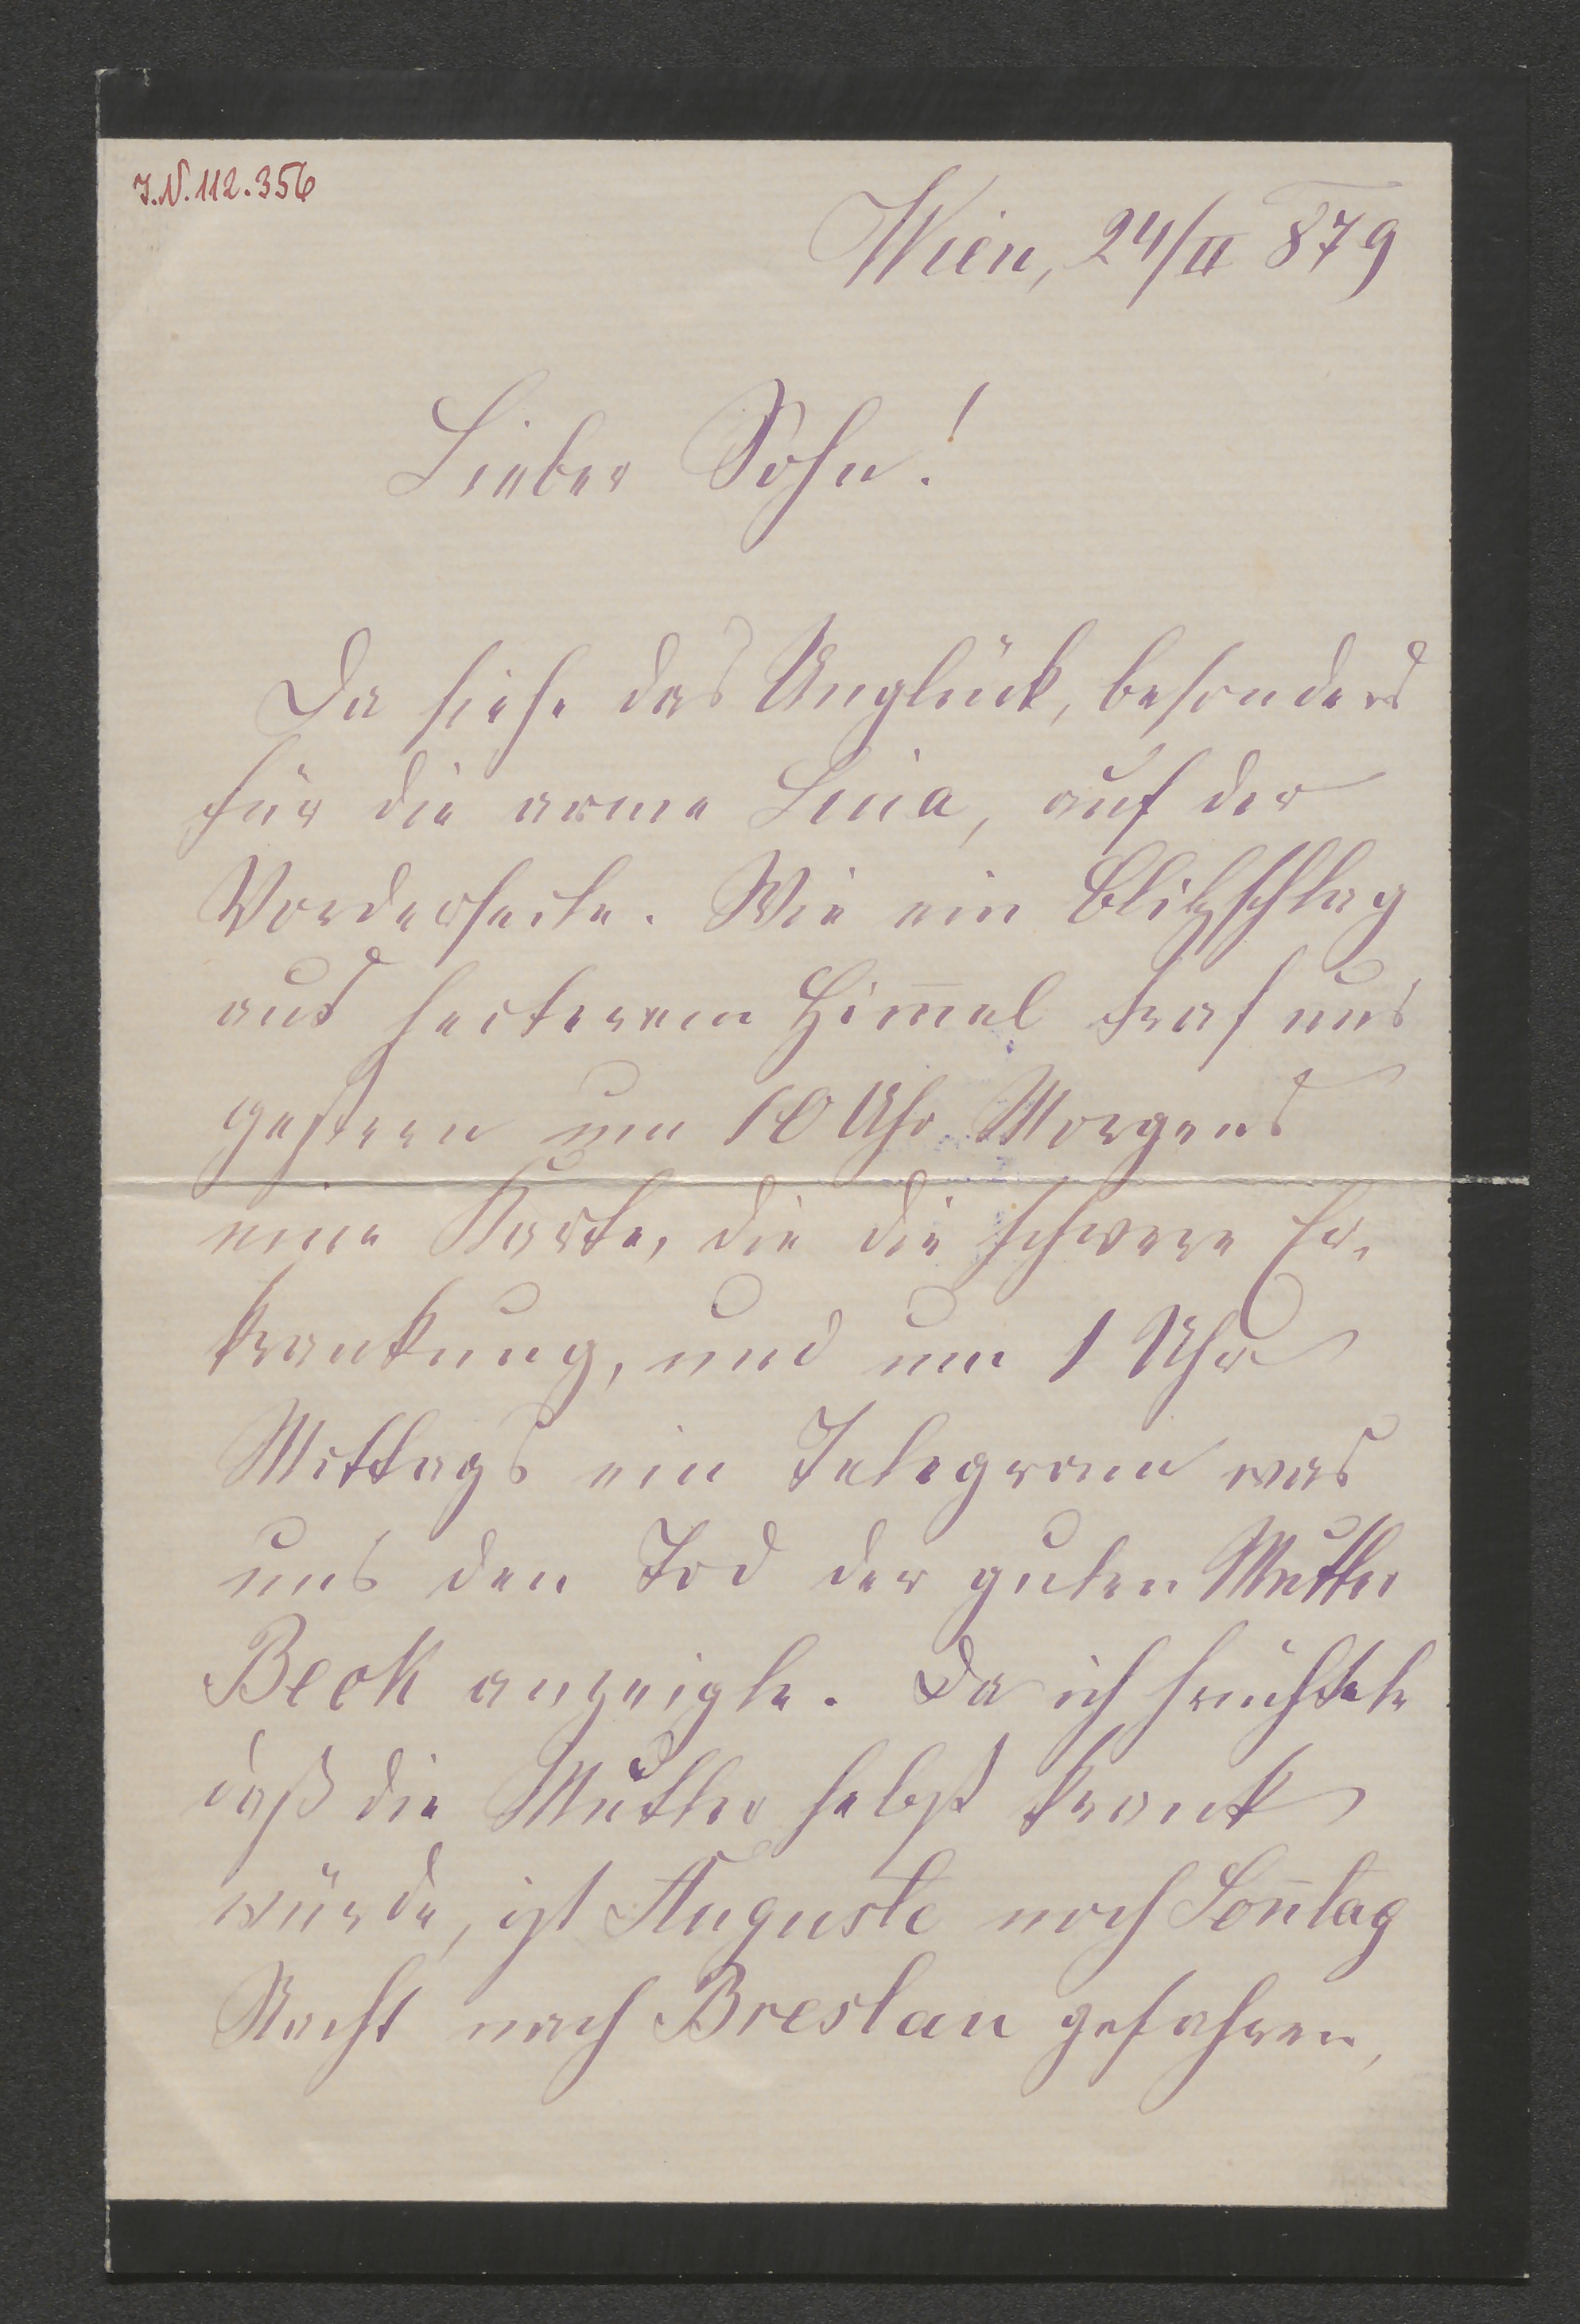 J.N. 112.356
Wien, 24/II 879
Lieber Sohn!
Da siehe das Unglück, besonders
für die arme Lina, auf der
Vorderseite. Wie ein Blitzschlag
aus heiterem Him̄el traf uns
gestern um 10 Uhr Morgens
eine Karte, die die schwere Er-
krankung, und um 1 Uhr
Mittags ein Telegram was
uns den Tod der guten Mutter
Beck anzeigte. Da ich fürchtete
daß die Mutter selbst krank
würde, ist Auguste noch Son̄tag
Nacht nach Breslau gefahren,